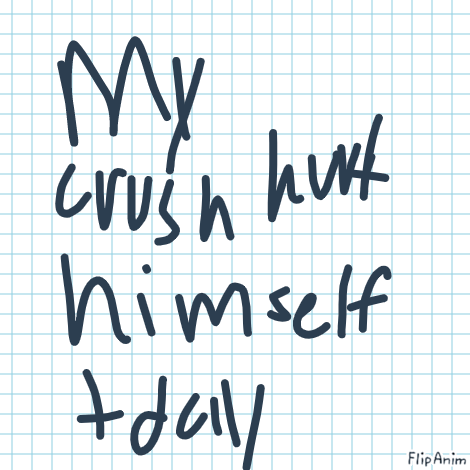 My
crush hurt
himself
tdaly
FlipAnim